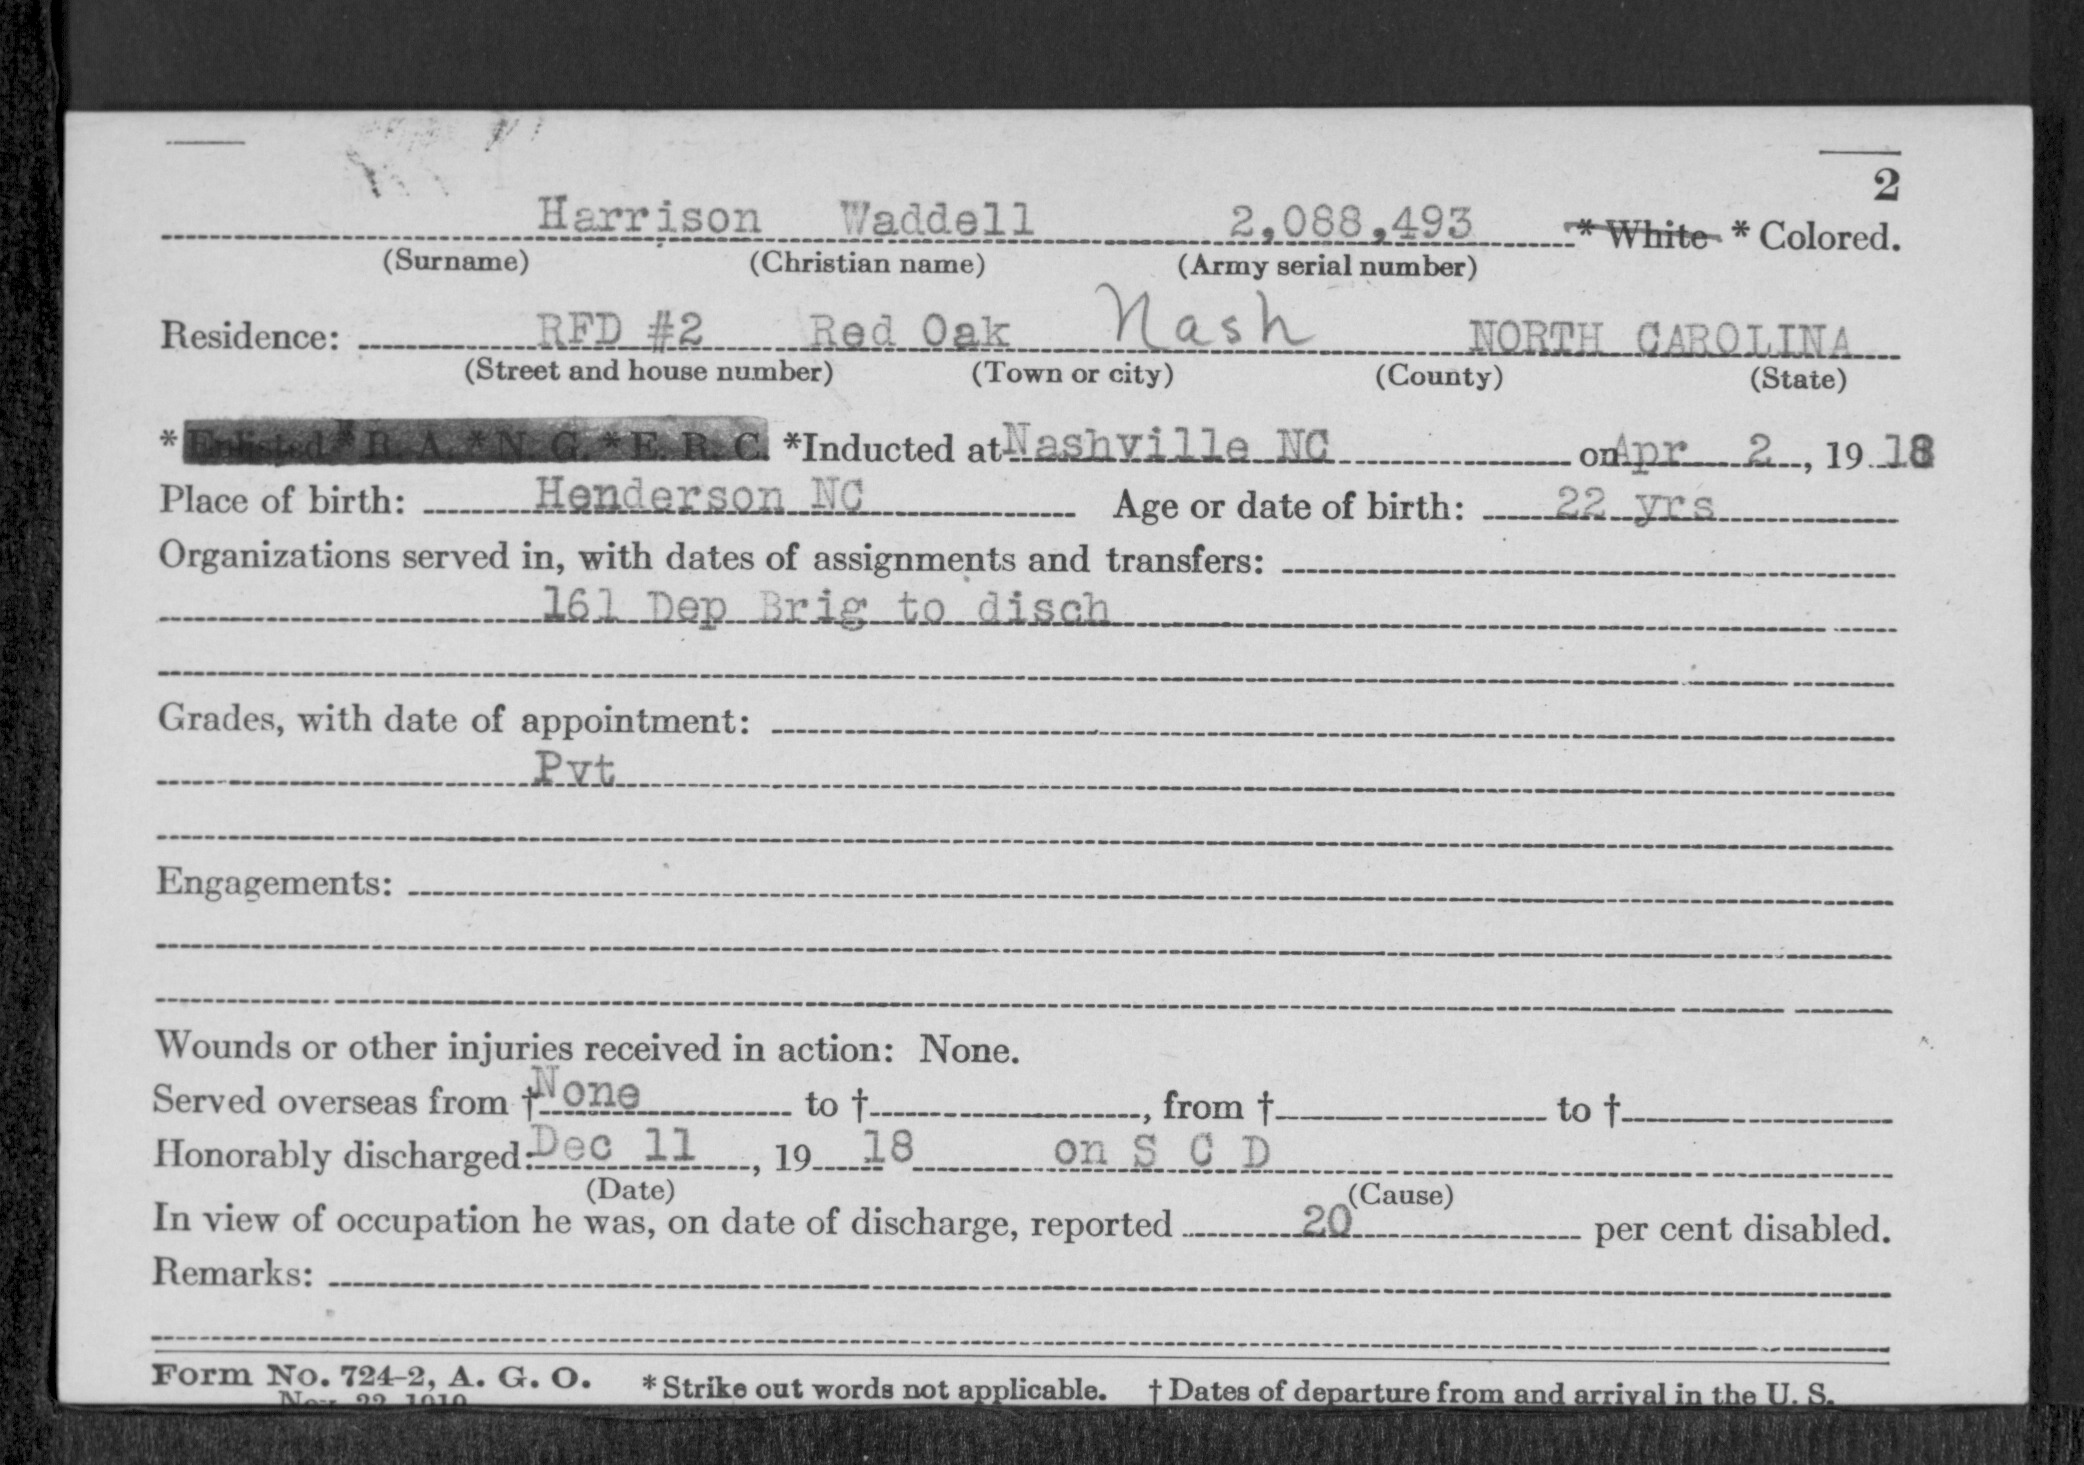 2
Harrison Waddell 2,088,493 * White * Colored.
(Surname) (Christian name) (Army serial number)
Residence: RFD #2 Red Oak Nash NORTH CAROLINA
(Street and house number) (Town or city) (County) (State)
* Enlisted * R. A. * N. G. * E. R. C. *Inducted at Nashville NC on Apr 2, 19 18
Place of birth: Henderson NC Age or date of birth: 22 yrs
Organizations served in, with dates of assignments and transfers:
161 Dep Brig to disch
Grades, with date of appointment:
Pvt
Engagements:
Wounds or other injuries received in action: None.
Served overseas from † None to †, from † to †
Honorably discharged: Dec 11, 19 18 on S C D
(Date) (Cause)
In view of occupation he was, on date of discharge, reported 20 per cent disabled.
Remarks:
Form No. 724-2, A. G. O. * Strike out words not applicable. † Dates of departure from and arrival in the U. S.
Nov. 22, 1919